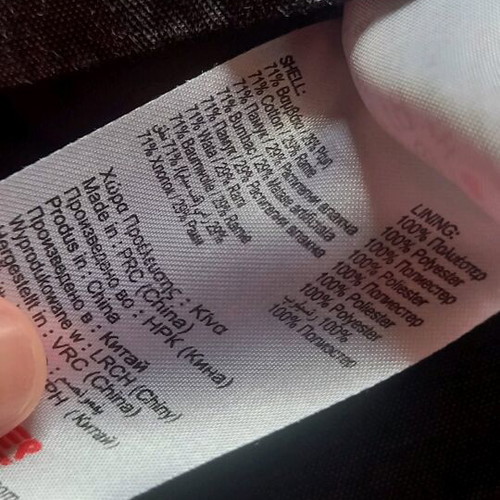 SHELL:
71% Βαμβάκι / 29% Ραμί
71% Cotton / 29% Ramie
71% Памук / 29% Растителни влакна
71% Bumbac / 29% Matase artificiala
71% Памук / 29% Растителни влакна
71% Wełna / 29% Rami
71% Baumwolle / 29% Ramie
71% / 29%
71% Хлопок / 29% Рами
LINING:
100% Πολυέστερ
100% Polyester
100% Полиестер
100% Poliester
100% Полиестер
100% Poliester
100% Polyester
100%
100% Полиэстер
Χώρα Προέλευσης : Κίνα
Made in : PRC (China)
Произведено во : НРК (Кина)
Produs in : China
Произведено в : Китай
Wyprodukowane w : LRCH (Chiny)
Hergestellt in : VRC (China)
(Китай)